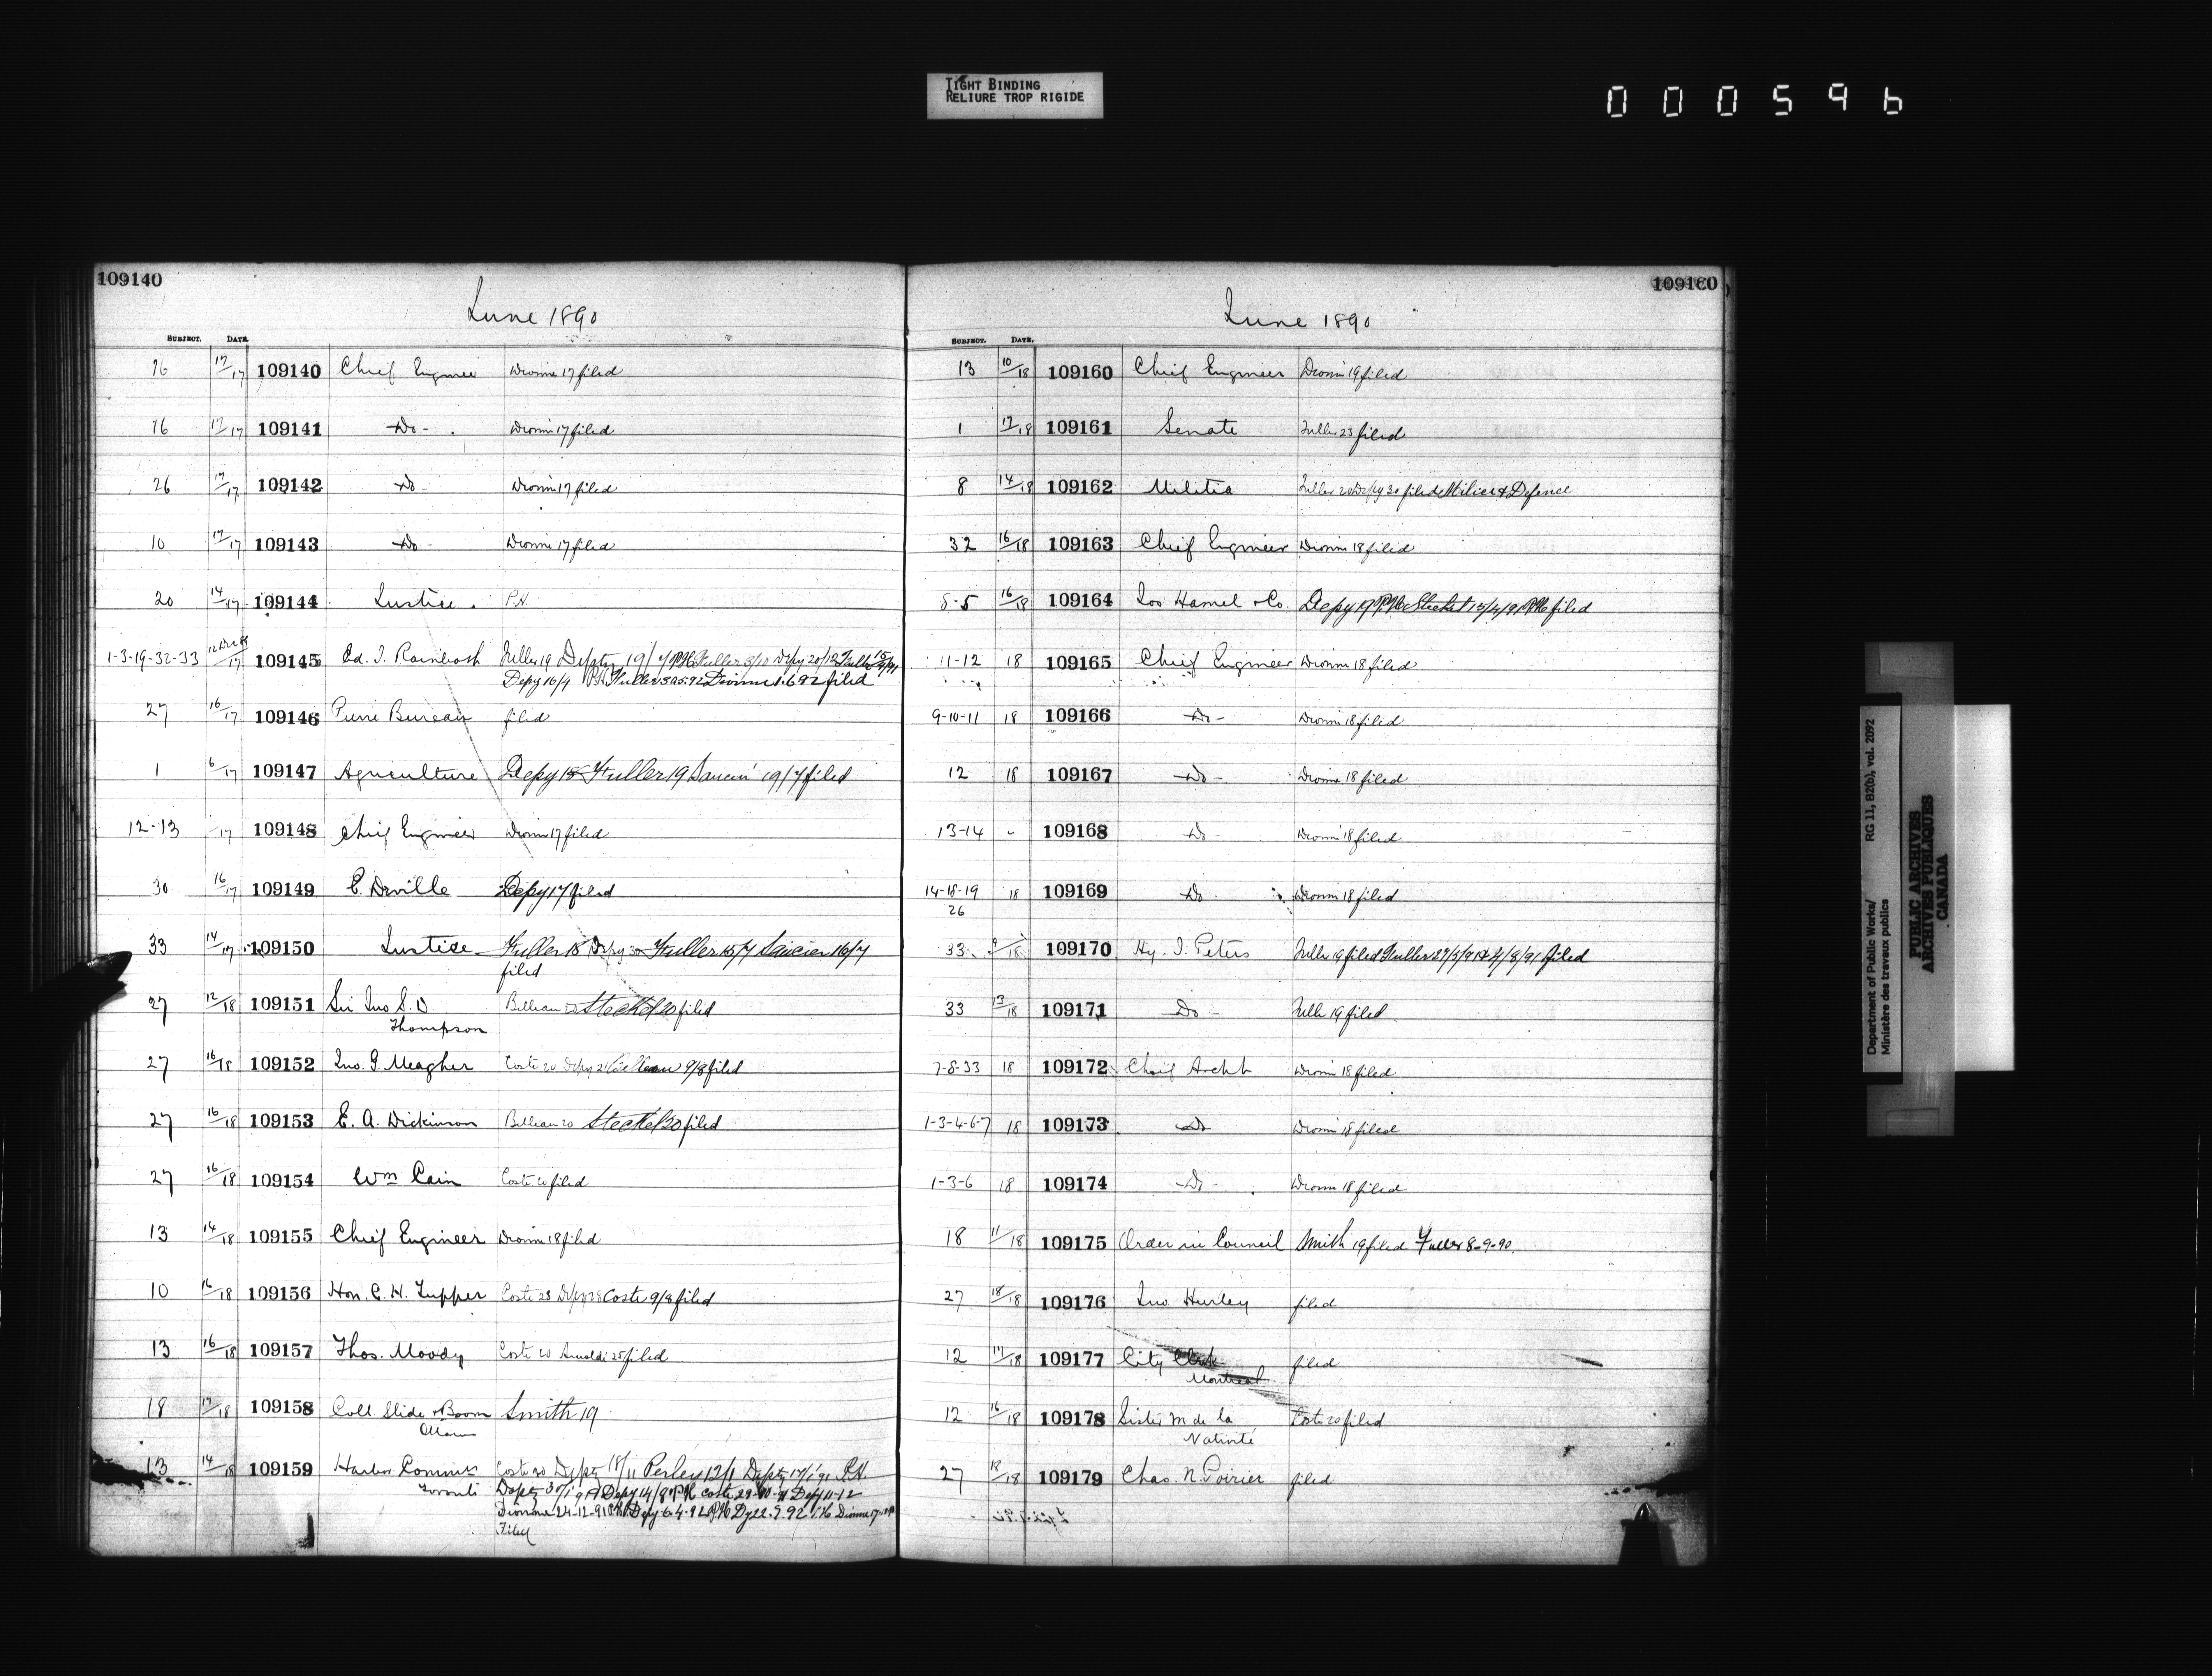 TIGHT BINDING
RELIURE TROP RIGIDE
000596
109140
June 1890
SUBJECT. DATE.
76 17/17 109140 Chief Engineer Dionne 17 filed
76 17/17 109141 -Do- Dionne 17 filed
26 17/17 109142 Do- Dionne 17 filed
10 17/17 109143 -Do- Dionne 17 filed
20 14/17 109144 Justice. P.H.
1-3-19-32-33 12 Dec 88/17 109145 Ed. J. Rainboth Fuller 19 Depty 19/7 P.H. Fuller 3/10 Depy 20/12 Fuller 15/9/91
Depy 16/4 P.H. Fuller 30.5.92 Dionne 1.6.92 filed
27 16/17 109146 Pierre Bureau filed
1 6/17 109147 Agriculture Depy 18 Fuller 19 Saucier 19/7 filed
12-13 /17 109148 Chief Engineer Dionne 17 filed
30 16/17 109149 E. Deville Depy 17 filed
33 14/17 109150 Justice Fuller 18 Depy 30 Fuller 15/7 Saucier 16/7
filed
27 12/18 109151 Sir Jno S. D
Thompson Belleau 20 Steckel 20 filed
27 16/18 109152 Jno. G. Meagher Coste 20 Depy 21 Belleau 9/8 filed
27 16/18 109153 E. A. Dickinson Belleau 20 Steckel 20 filed
27 16/18 109154 Wm Cain Coste 20 filed
13 14/18 109155 Chief Engineer Dionne 18 filed
10 16/18 109156 Hon. C. H. Tupper Coste 23 Depy 28 Coste 9/8 filed
13 16/18 109157 Thos. Moody Coste 20 Arnoldi 25 filed
18 17/18 109158 Coll Slide & Boom Smith 19
Ottawa
13 14/18 109159 Harbor Commrs Coste 20 Depty 18/11 Perley 12/1 Depty 17/1 91 P.H.
Toronto Depty 30/1 91 Depy 14/8 P.H. Coste 29-10-91 Depy 11-12
Dionne 24-12-91 P.H. Depy 6.4.92 P.H. Dy 22.9.92 P.H. Dionne 17
Filed
109160
June 1890
SUBJECT. DATE.
13 10/18 109160 Chief Engineer Dionne 19 filed
1 17/18 109161 Senate Fuller 23 filed
8 14/18 109162 Militia Fuller 20 Depy 30 filed Milice & Defence
32 16/18 109163 Chief Engineer Dionne 18 filed
8-5 16/18 109164 Jos Hamel & Co. Depy 19 P.H. Steckel 15/4/91 P.H. filed
11-12 18 109165 Chief Engineer Dionne 18 filed
9-10-11 18 109166 -Do- Dionne 18 filed
12 18 109167 -Do- Dionne 18 filed
13-14 - 109168 -Do- Dionne 18 filed
14-18-19 18 109169 Do- Dionne 18 filed
26
33 9/18 109170 Hy. J. Peters Fuller 19 filed Fuller 27/5/91 4/8/91 filed
33 13/18 109171 Do- Fuller 19 filed
7-8-33 18 109172 Chief Archt Dionne 18 filed
1-3-4-6-7 18 109173 Do Dionne 18 filed
1-3-6 18 109174 -Do- Dionne 18 filed
18 11/18 109175 Order in Council Smith 19 filed Fuller 8-9-90
27 18/18 109176 Jno. Hurley filed
12 17/18 109177 City Clerk filed
Montreal
12 16/18 109178 Sister M de la Coste 20 filed
Nativité
27 18/18 109179 Chas. N. Poirier filed
Department of Public Works/ RG 11, B2(b), vol. 2092
Ministère des travaux publics
PUBLIC ARCHIVES
ARCHIVES PUBLIQUES
CANADA